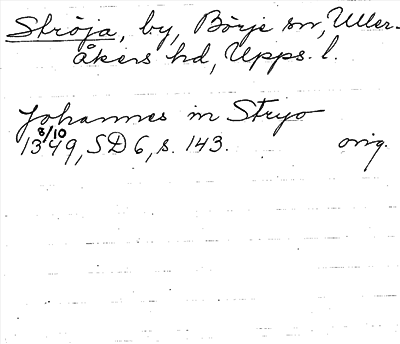 Ströja, by, Börje sn, Uller-
åkers hd, Upps. l.
Johannes in Stryo
8/10
1349, SD 6, s. 143. orig.